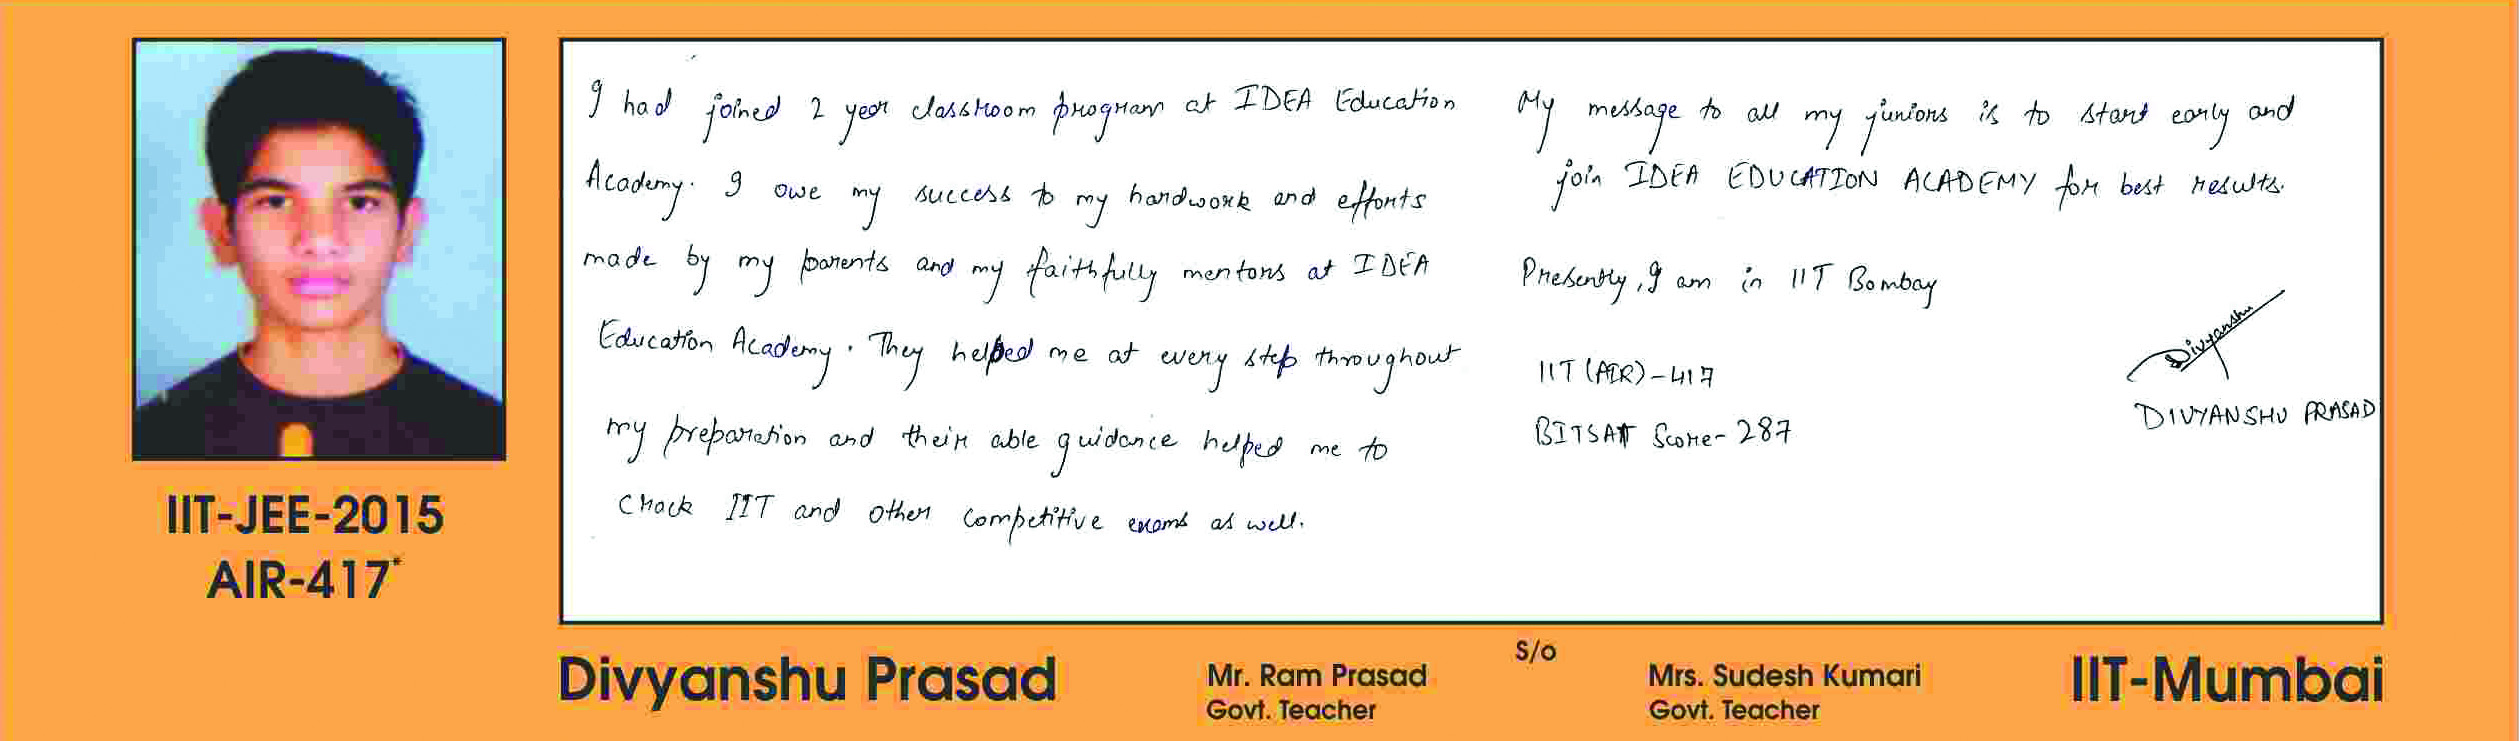 I had joined 2 year classroom program at IDEA Education
Academy. I owe my success to my hardwork and efforts
made by my parents and my faithfully mentors at IDEA
Education Academy. They helped me at every step throughout
my preparation and their able guidance helped me to
Crack IIT and other competitive exams as well.
My message to all my juniors is to start early and
join IDEA EDUCATION ACADEMY for best results.
Presently, I am in IIT Bombay
IIT (AIR)-417
BITSAT Score-287
Divyanshu
DIVYANSHU PRASAD
IIT-JEE-2015
AIR-417*
Divyanshu Prasad
S/o
Mr. Ram Prasad
Govt. Teacher
Mrs. Sudesh Kumari
Govt. Teacher
IIT-Mumbai